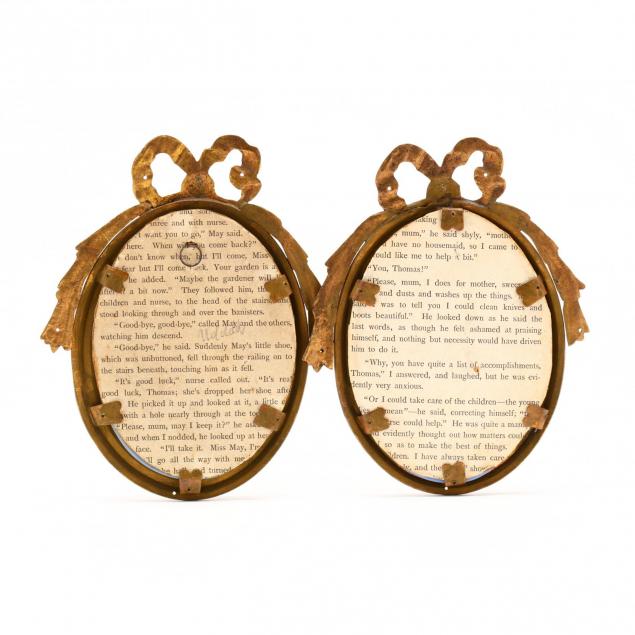 and
three and with nurse.
want you to go," May said.
here. When will you come back?"
don't know when, but I'll come, Miss
fear but I'll come back. Your garden is a
he added. "Maybe the gardener will
after a bit now." They followed him, the
children and nurse, to the head of the stairs and
stood looking through and over the banisters.
"Good-bye, good-bye," called May and the others,
watching him descend.
"Good-bye," he said. Suddenly May's little shoe,
which was unbuttoned, fell through the railing on to
the stairs beneath, touching him as it fell.
"It's good luck," nurse called out. "It's real
good luck, Thomas; she's dropped her shoe after
He picked it up and looked at it, a little
with a hole nearly through at the toe.
"Please, mum, may I keep it?" he
and when I nodded, he looked up at her
face. "I'll take it. Miss May, I'm
I'll go all the way with me
he had turned
making
mum," he said shyly, "mother
have no housemaid, so I came to
would like me to help a bit."
"You, Thomas!"
"Please, mum, I does for mother, sweeps
and dusts and washes up the things.
said I was to tell you I could clean knives and
boots beautiful." He looked down as he said the
last words, as though he felt ashamed at praising
himself, and nothing but necessity would have driven
him to do it.
"Why, you have quite a list of accomplishments,
Thomas," I answered, and laughed, but he was evi-
dently very anxious.
"Or I could take care of the children—the young
mean"—he said, correcting himself;
nurse could help." He was quite a man
and evidently thought out how matters could
so as to make the best of things.
children. I have always taken care
and the show